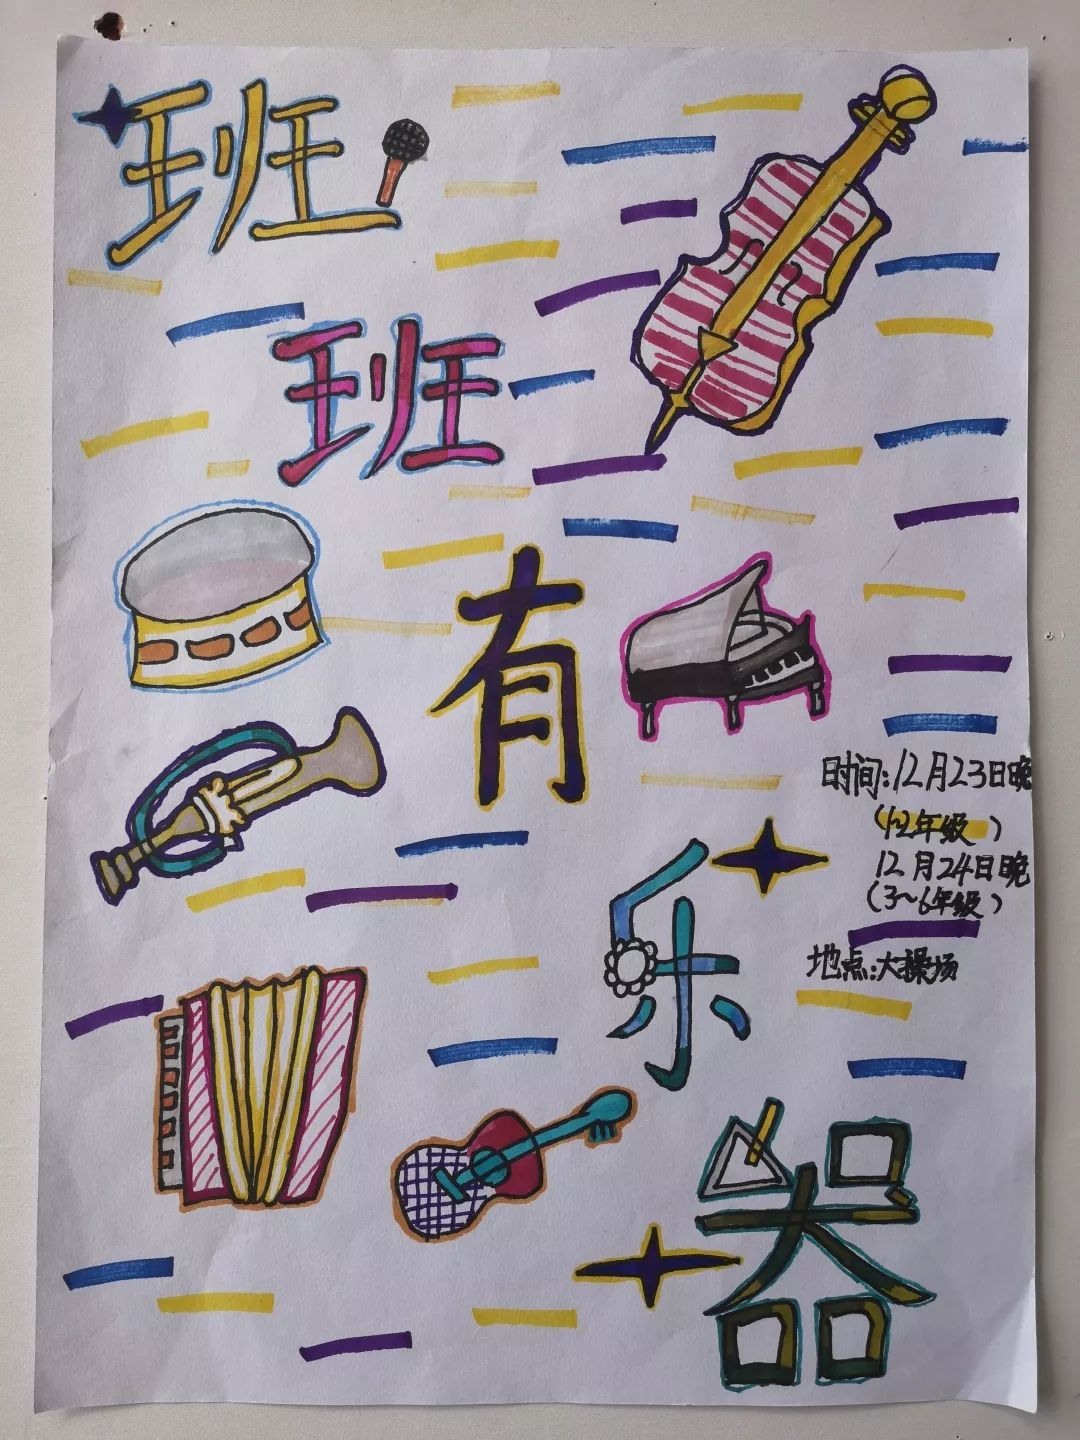 班
班
有
乐
器
时间:12月23日晚
(1~2年级)
12月24日晚
(3~6年级)
地点:大操场